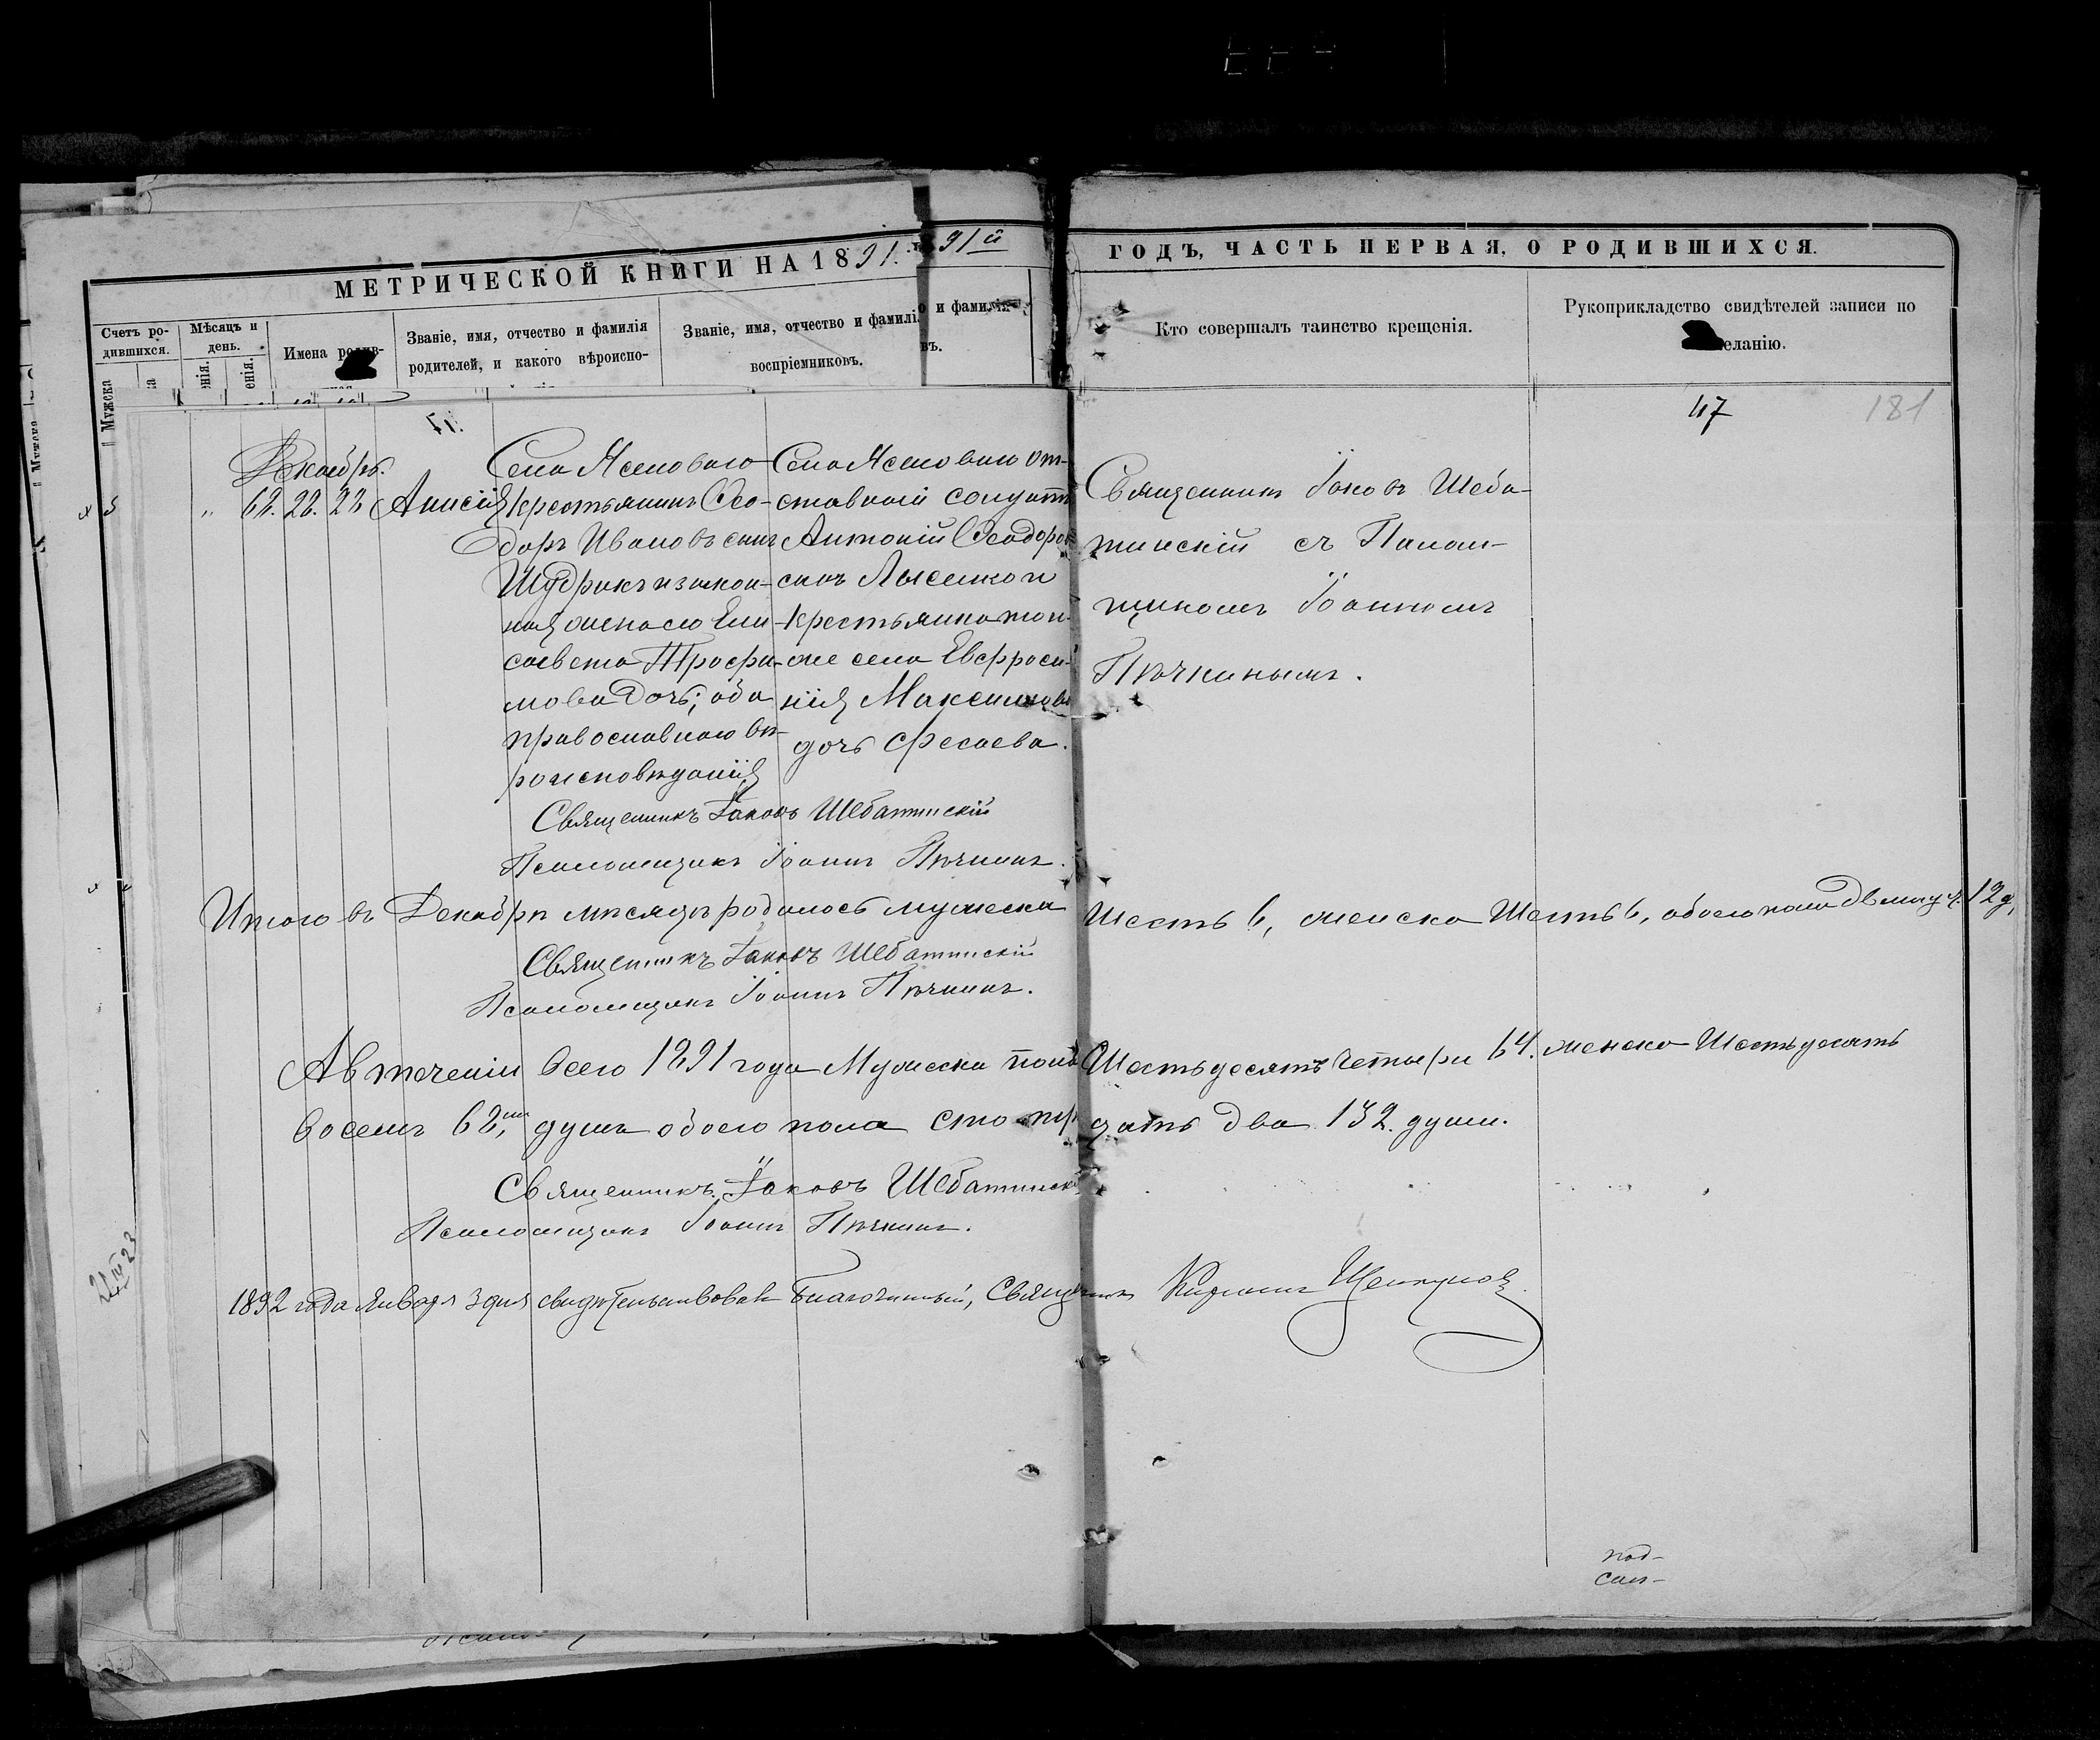 МЕТРИЧЕСКОЙ КНИГИ НА 1891.
91й
ГОДЪ, ЧАСТЬ ПЕРВАЯ, О РОДИВШИХСЯ.
Счетъ ро-
дившихся.
Мѣсяцъ и
день.
Имена
Званіе, имя, отчество и фамилія
родителей, и какого вѣроиспо-
Званіе, имя, отчество и фамилі
воспріемниковъ.
о и фамилія
въ.
Кто совершалъ таинство крещенія.
Рукоприкладство свидѣтелей записи по
еланію.
Мужеска
47
181
Декабрь.
68. 28. 28 Анисія
Села Ясеноваго
крестьянинъ Ѳео-
доръ Ивановъ сынъ
Шудрикъ и закон-
ная жена его Ели-
савета Трофи-
мова дочь; оба
православнаго вѣ-
роисповѣданія
Села Ясеноваго от-
ставной солдатъ
Антоній Ѳеодоров
сынъ Лысенко и
крестьянка той
же села Евфроси-
нія Максимова
дочь Фесаева.
Священникъ Іаковъ Шеба-
тинскій съ Псалом-
щикомъ Іоанномъ
Пѣчкинымъ.
Священникъ Іаковъ Шебатинскій
Псаломщикъ Іоаннъ Пѣчкинъ.
Итого въ Декабрѣ мѣсяцѣ родилось мужеска Шесть 6, женска Шесть 6, обоего пола двѣнадц. 12 д,
Священникъ Іаковъ Шебатинскій
Псаломщикъ Іоаннъ Пѣчкинъ.
А в теченіи всего 1891 года Мужеска пола Шестьдесятъ четыри 64. женска Шестьдесятъ
восемь 68, душъ обоего пола сто тр дцать два 132. души.
Священникъ Іаковъ Шебатинскі
Псаломщикъ Іоаннъ Пѣчкинъ.
1892 года Января 3 дня свидѣтельствовалъ Благочинный, Священникъ Кириллъ
под-